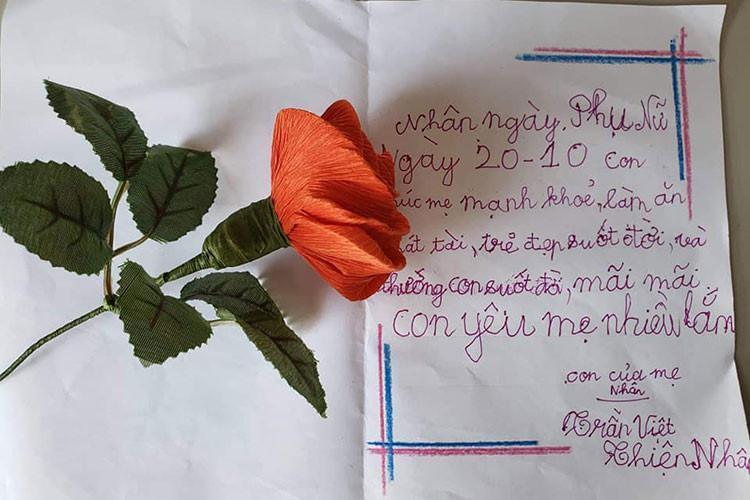 Nhân ngày. Phụ Nữ
Ngày 20-10 con
húc mẹ mạnh khoẻ, làm ăn
át tài, trẻ đẹp suốt đời, và
thưởng con suốt đờ, mãi mãi.
con yêu mẹ nhiều lắm
con của mẹ
Nhân
Trần Việt
Thiện Nhâ